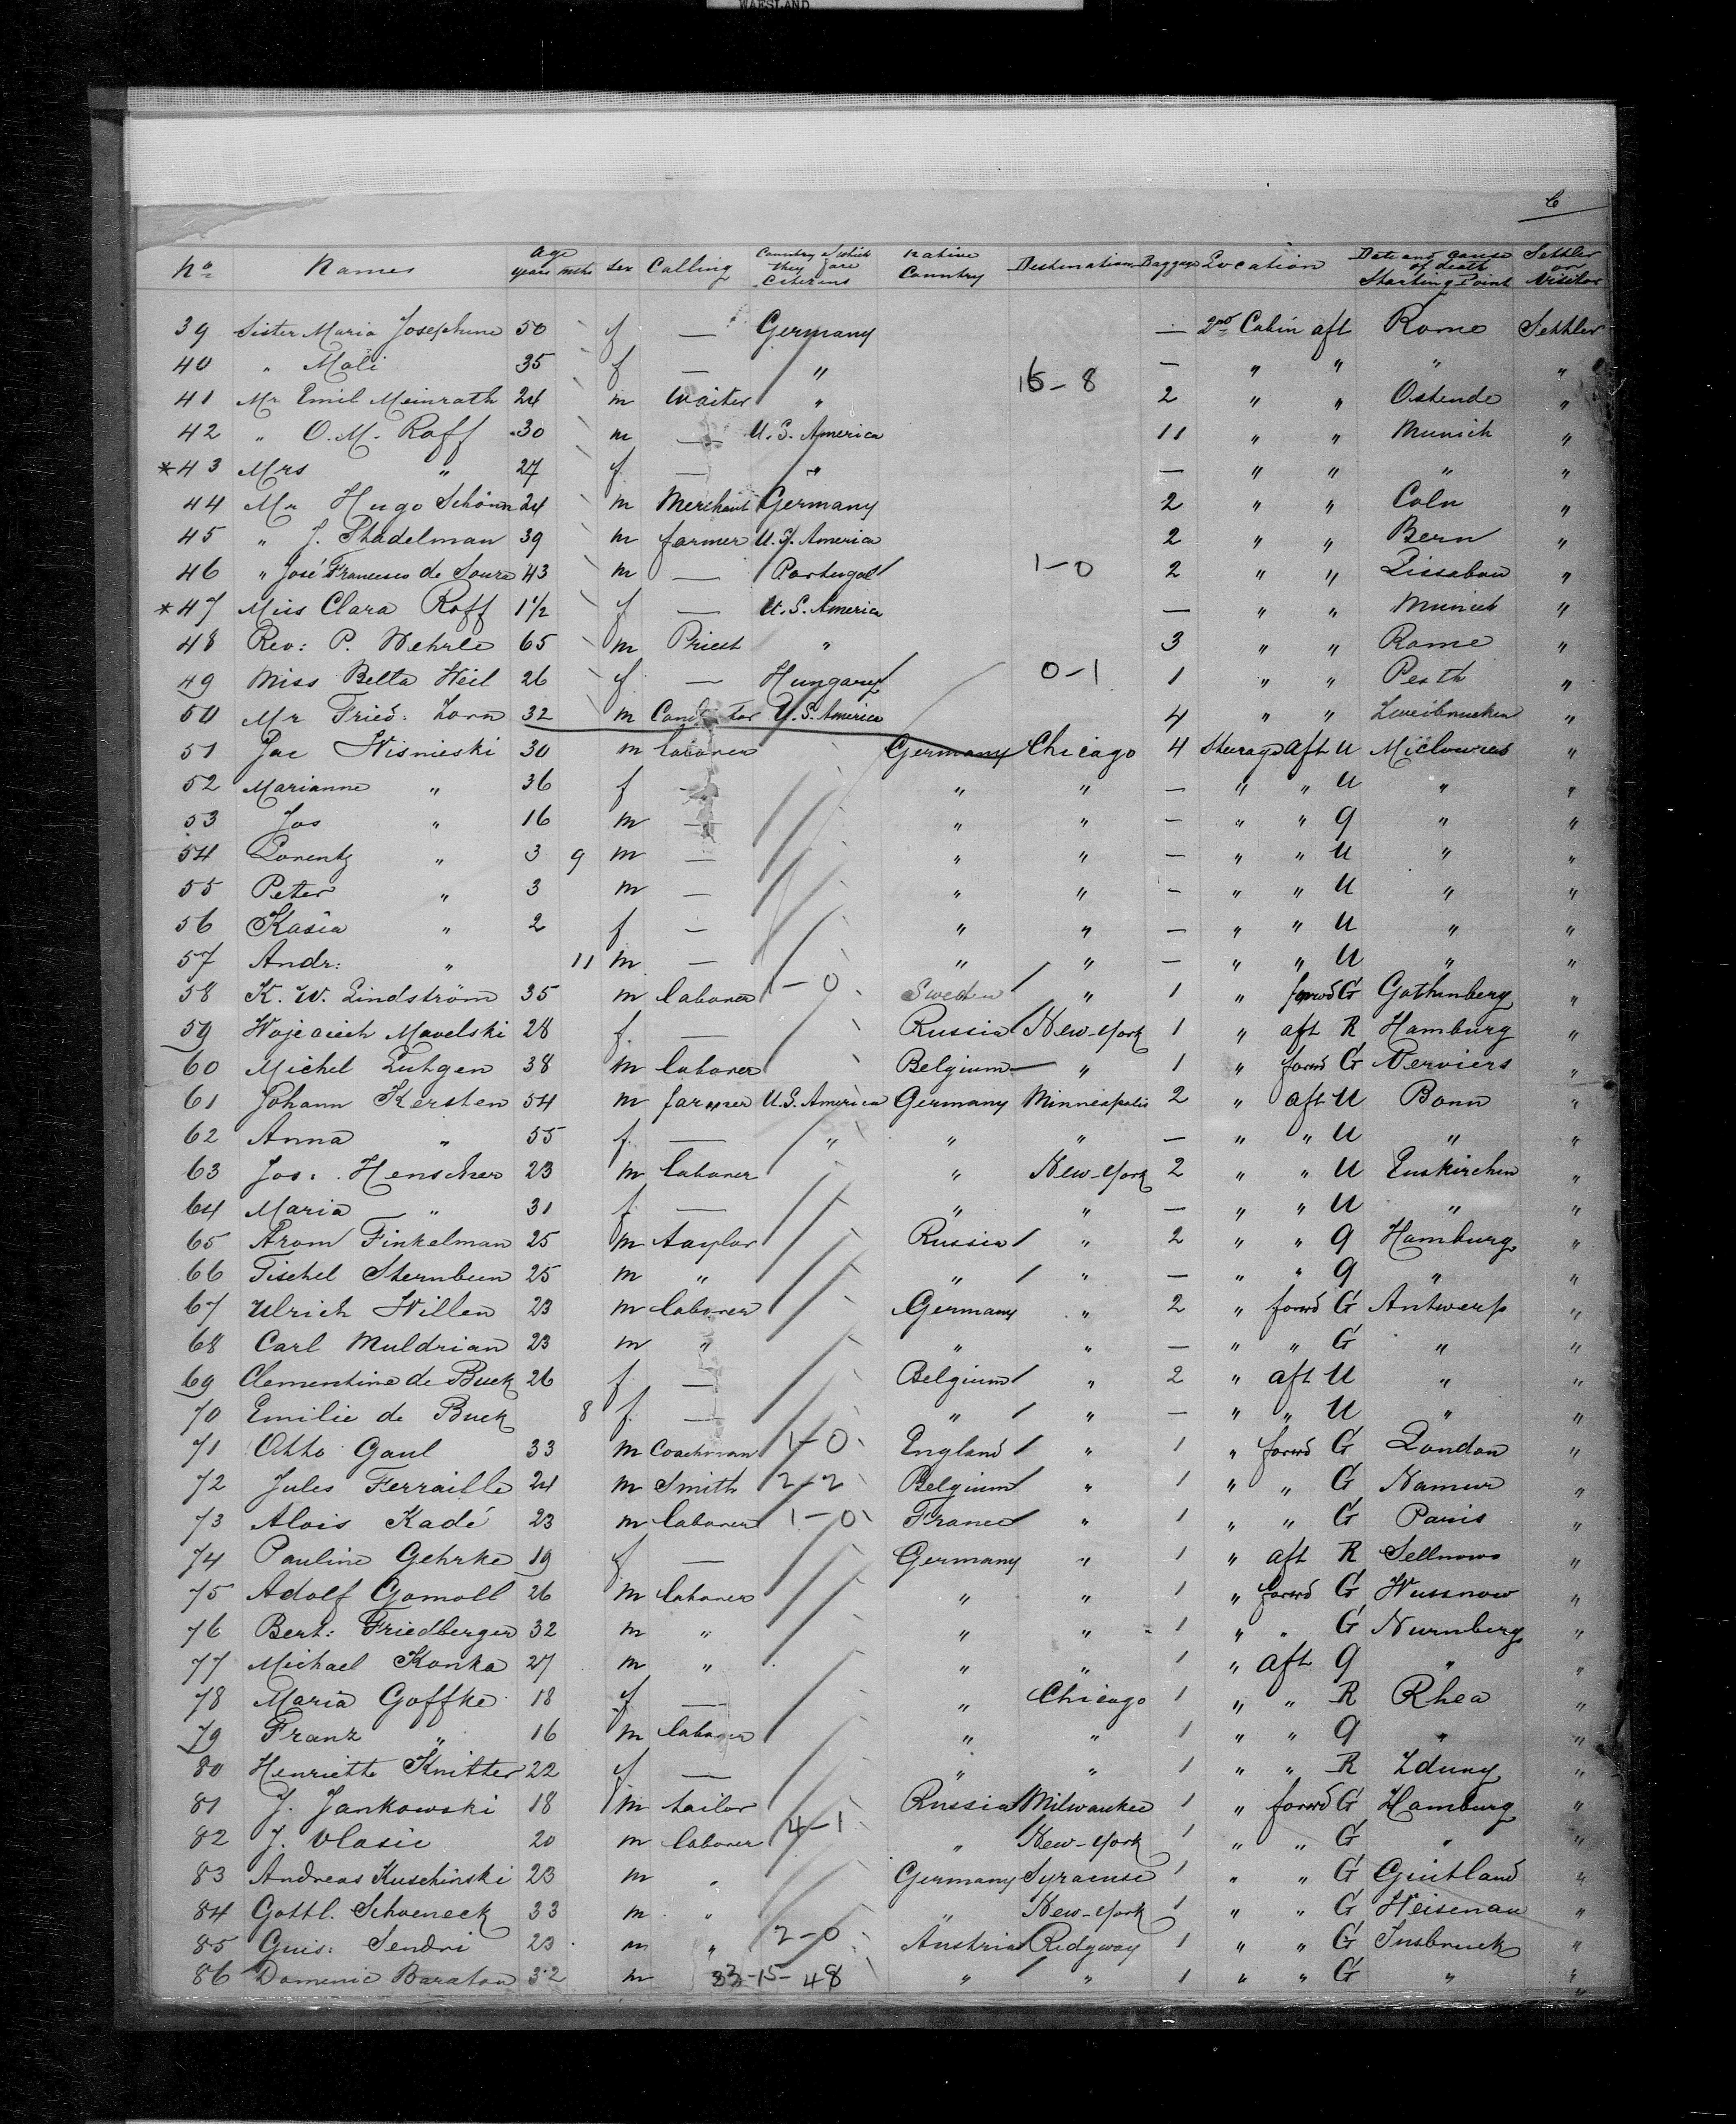 WAESLAND
6
No Names Age years mths Sex Calling Country of which they are Citizens Native Country Destination Baggage Location Date and cause of death Starting Point Settler or Visitor
39 Sister Maria Josephine 50 f — Germany — 2nd Cabin aft Rome Settler
40 " Mali 35 f — " — " " " "
16-8
41 Mr Emil Meinrath 24 m Waiter " 2 " " Ostende "
42 " O. M. Roff 30 m — U. S. America 11 " " Munich "
*43 Mrs " 27 f — " — " " " "
44 Mr Hugo Schönn 24 m Merchant Germany 2 " " Coln "
45 " J. Stadelman 39 m farmer U. S. America 2 " " Bern "
46 " José Francesco de Souza 43 m — Portugal 1-0 2 " " Lissabon "
*47 Miss Clara Roff 1 1/2 f — U. S. America — " " Munich "
48 Rev: P. Wehrle 65 m Priest " 3 " " Rome "
49 Miss Betta Weil 26 f — Hungary 0-1 1 " " Pesth "
50 Mr Fried: Zorn 32 m U. S. America 4 " " Zweibrucken "
51 Jac Wisnieski 30 m laborer Germany Chicago 4 Steerage aft U "
52 Marianne " 36 f — " " — " " U " "
53 Jos " 16 m — " " — " " q " "
54 Lorentz " 3 9 m — " " — " " U " "
55 Peter " 3 m — " " — " " U " "
56 Kasia " 2 f — " " — " " U " "
57 Andr: " 11 m — " " — " " U " "
58 K. W. Lindström 35 m laborer 1-0 Sweden " 1 " forwd G Gothenberg "
59 Wojciech Mavelski 28 f — Russia New-York 1 " aft R Hamburg "
60 Michel Lutgen 38 m laborer Belgium " 1 " forwd G Verviers "
61 Johann Kersten 54 m farmer U. S. America Germany Minneapolis 2 " aft U Bonn "
62 Anna " 55 f — " " " — " " U " "
63 Jos: Henscher 23 m laborer " New-York 2 " " U Euskirchen "
64 Maria " 31 f — " " — " " U " "
65 Arom Finkelman 25 m taylor Russia " 2 " " q Hamburg "
66 Fischel Sternbein 25 m " " " — " " q " "
67 Ulrich Willen 23 m laborer Germany " 2 " forwd G Antwerp "
68 Carl Muldrian 23 m " " " — " " G " "
69 Clementine de Buck 26 f — Belgium " 2 " aft U " "
70 Emilie de Buck 8 f — " " — " " U " "
71 Otto Gaul 33 m Coachman 1-0 England " 1 " forwd G London "
72 Jules Ferraille 24 m Smith 2-2 Belgium " 1 " " G Namur "
73 Alois Kadé 23 m laborer 1-0 France " 1 " " G Paris "
74 Pauline Gehrke 19 f — Germany " 1 " aft R Sellnowo "
75 Adolf Gomoll 26 m laborer " " 1 " forwd G Wussnow "
76 Bert: Friedberger 32 m " " " 1 " " G Nurnberg "
77 Michael Konka 27 m " " " 1 " aft q " "
78 Maria Goffke 18 f — " Chicago 1 " " R Rhea "
79 Franz " 16 m laborer " " 1 " " q " "
80 Henriette Knitter 22 f — " " 1 " " R Zduny "
81 J. Jankowski 18 m tailor Russia Milwaukee 1 " forwd G Hamburg "
4-1
82 J. Vlasic 20 m laborer " New-York 1 " " G " "
83 Andreas Kuschinski 23 m " Germany Syracuse 1 " " G "
84 Gottl. Schoeneck 33 m " " New-York 1 " " G Weisenau "
85 Guis: Sendri 23 m " 2-0 Austria Ridgway 1 " " G Insbruck "
86 Domenic Baraton 32 m 33-15-48 " " 1 " " G " "